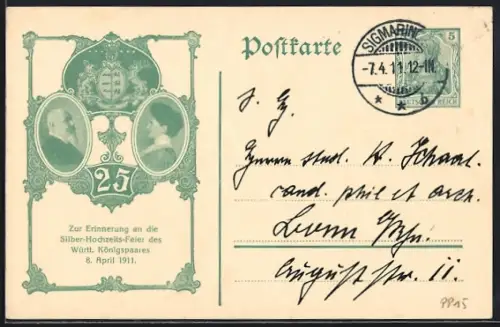 25
Zur Erinnerung an die
Silber-Hochzeits-Feier des
Württ. Königspaares
8. April 1911.
Postkarte
SIGMARING
-7.4.11.12-1N.
* * b
5
DEUTSCHES REICH
S. H.
Herrn stud. K. Schaal
cand. phil et arch.
Bonn a/Rhn.
Auguststr. 11.
PP15